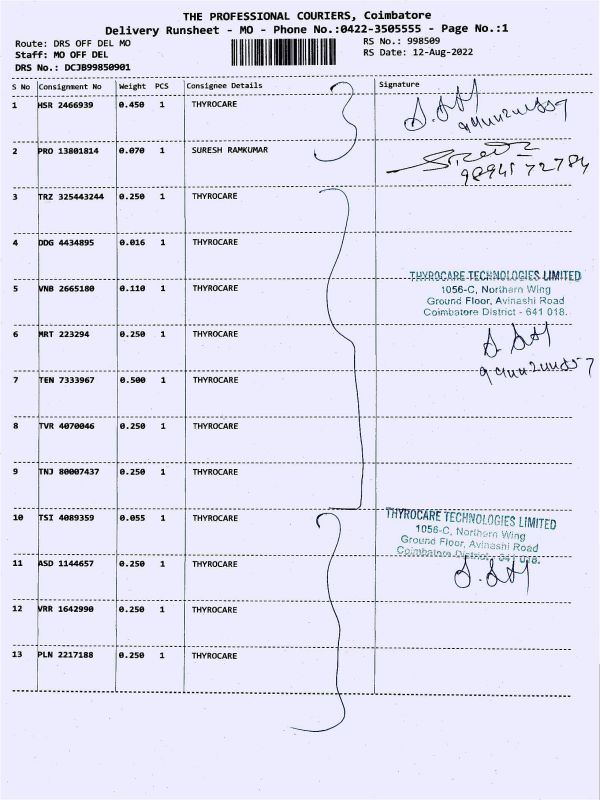 THE PROFESSIONAL COURIERS, Coimbatore
Delivery Runsheet - MO - Phone No.:0422-3505555 - Page No.:1
Route: DRS OFF DEL MO RS No.: 998509
Staff: MO OFF DEL RS Date: 12-Aug-2022
DRS No.: DCJB99850901
S No Consignment No Weight PCS Consignee Details Signature
1 HSR 2466939 0.450 1 THYROCARE
2 PRO 13801814 0.070 1 SURESH RAMKUMAR
3 TRZ 325443244 0.250 1 THYROCARE
4 DDG 4434895 0.016 1 THYROCARE
THYROCARE TECHNOLOGIES LIMITED
5 VNB 2665180 0.110 1 THYROCARE 1056-C, Northern Wing
Ground Floor, Avinashi Road
Coimbatore District - 641 018.
6 MRT 223294 0.250 1 THYROCARE
7 TEN 7333967 0.500 1 THYROCARE
8 TVR 4070046 0.250 1 THYROCARE
9 TNJ 80007437 0.250 1 THYROCARE
10 TSI 4089359 0.055 1 THYROCARE THYROCARE TECHNOLOGIES LIMITED
1056-C, Northern Wing
Ground Floor, Avinashi Road
Coimbatore District - 641 018.
11 ASD 1144657 0.250 1 THYROCARE
12 VRR 1642990 0.250 1 THYROCARE
13 PLN 2217188 0.250 1 THYROCARE